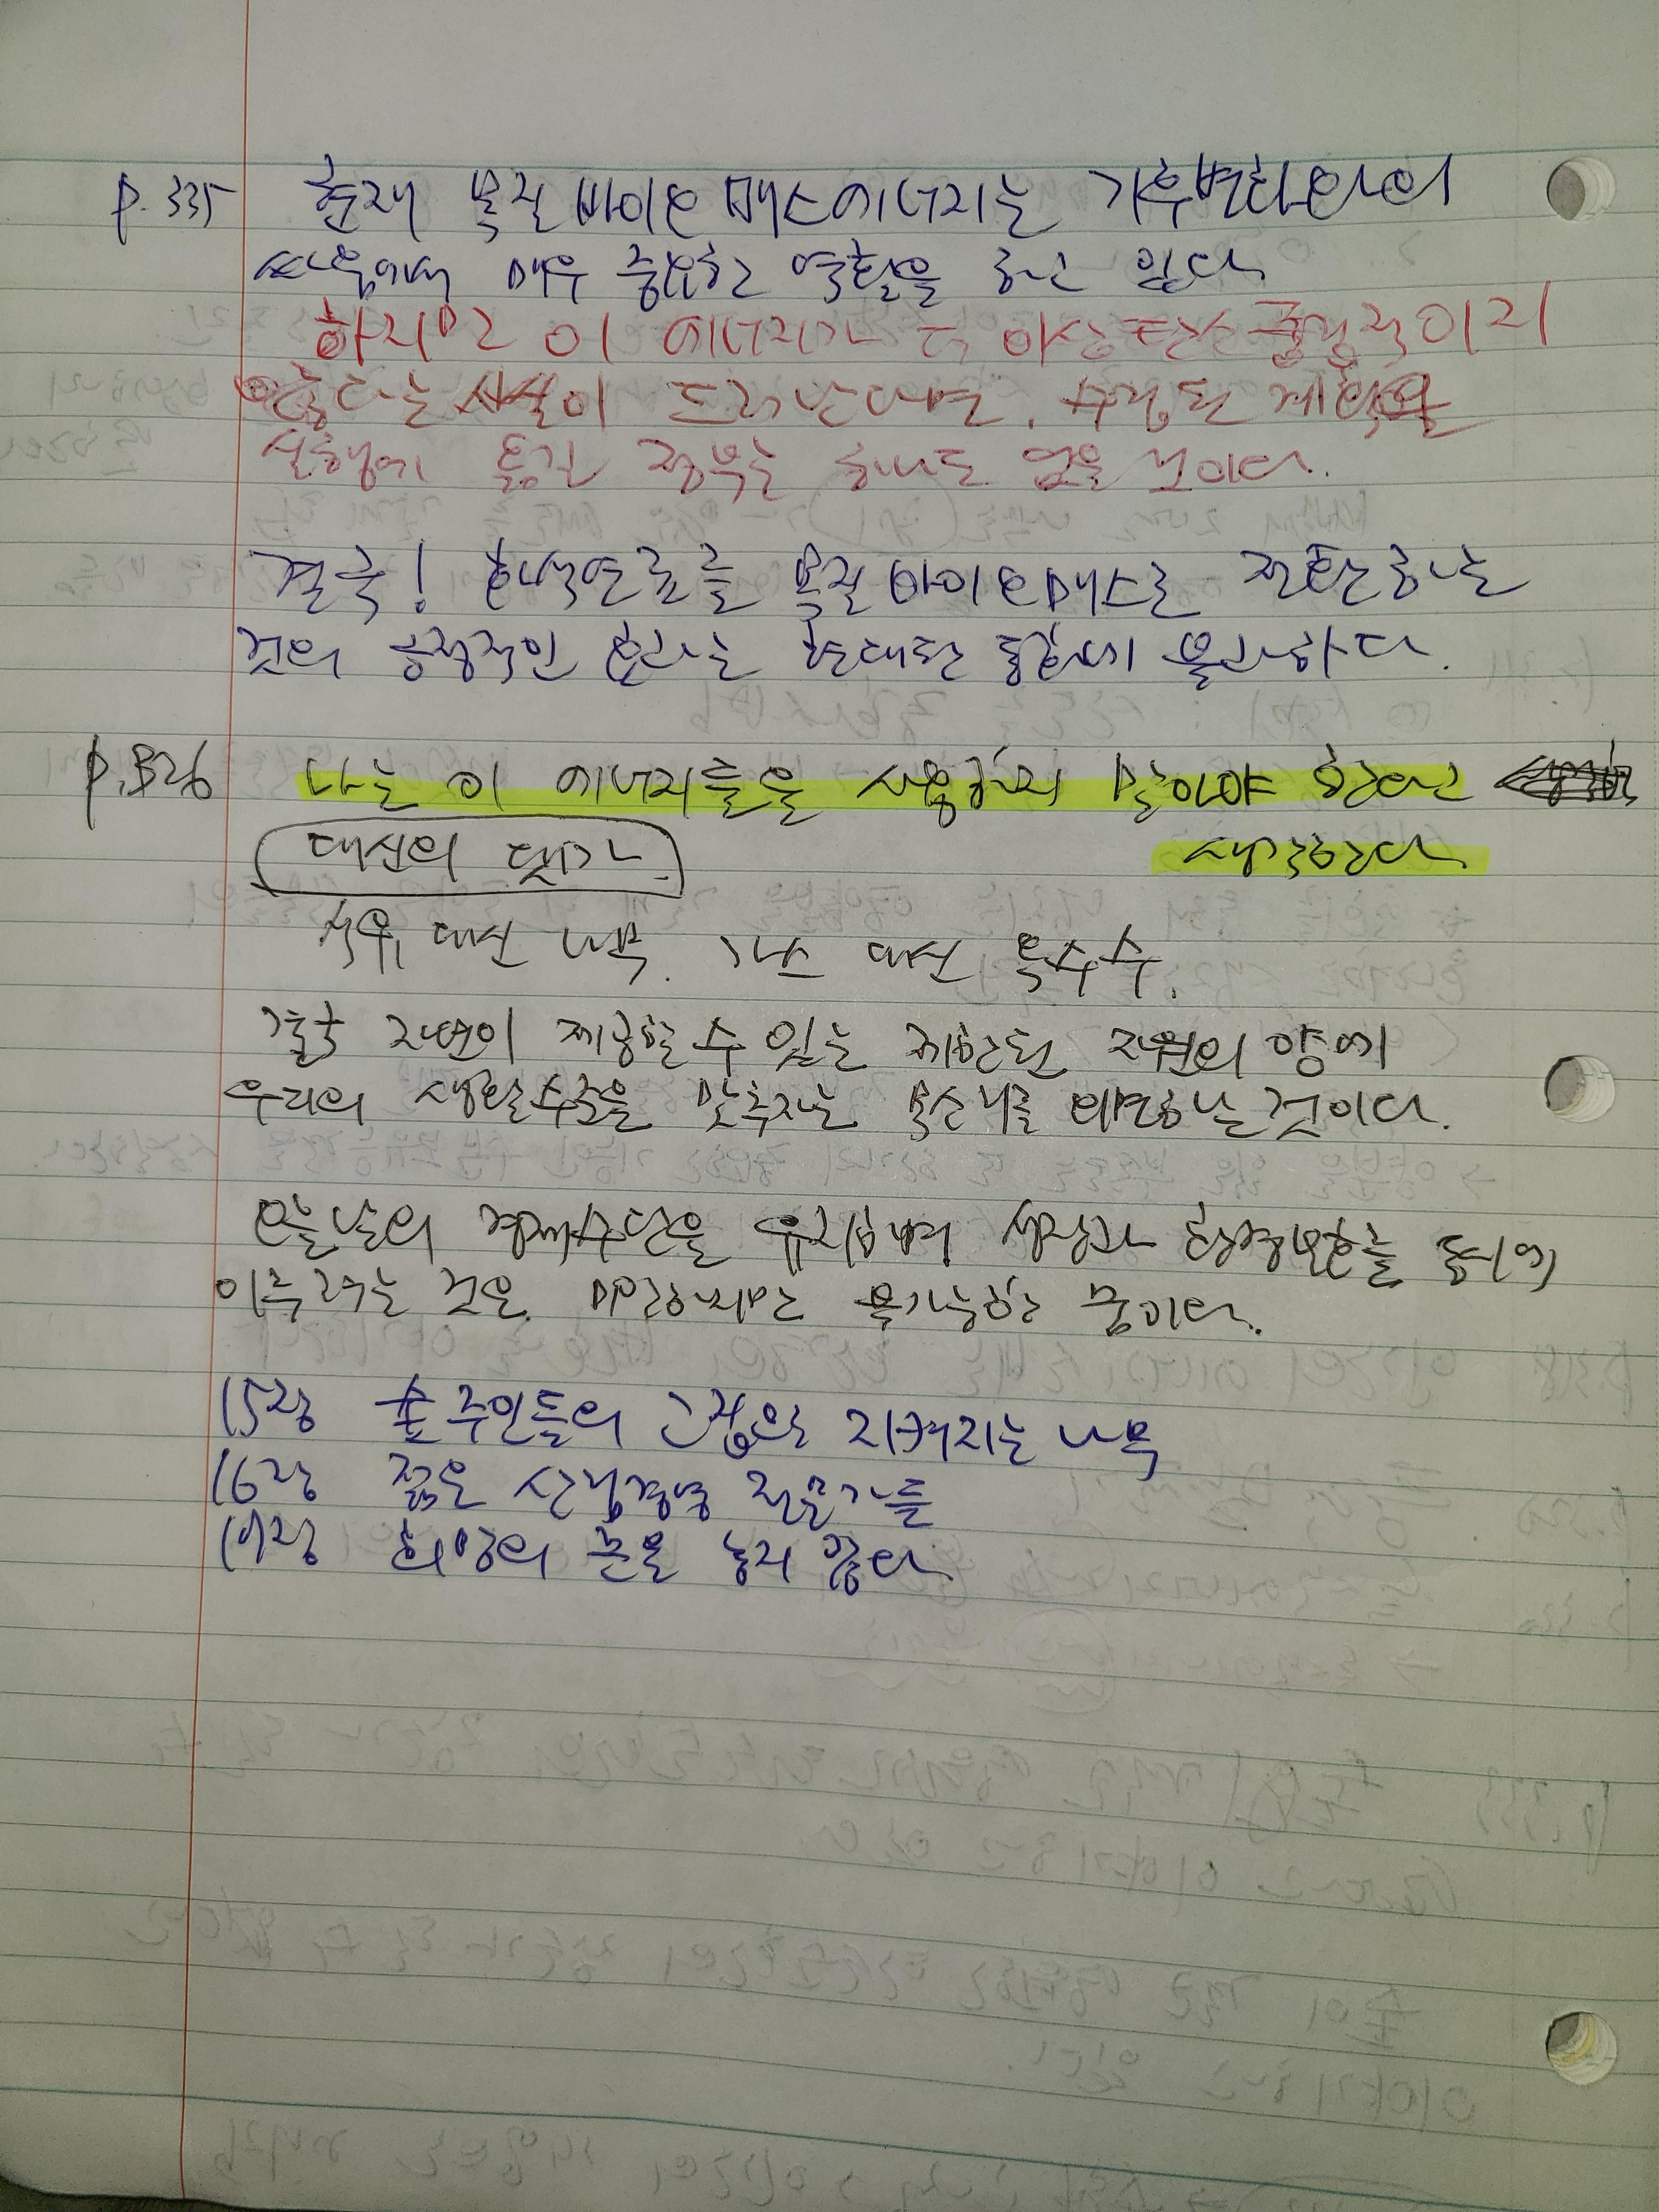 p.335 현재 목질 바이오매스에너지는 기후변화와의
싸움에서 매우 중요한 역할을 하고 있다
하지만 이 에너지가 더 이상 탄소중립적이지
않다는 사실이 드러난다면, 수정된 계획을
실행에 옮길 정부는 하나도 없을 것이다.
결국! 화석연료를 목질바이오매스로 전환하는
것의 긍정적인 효과는 확대된 통념에 불과하다.
p.336 나는 이 에너지들을 사용하지 말아야 한다고
생각한다
대신의 댓가
석유 대신 나무. 가스 대신 옥수수.
결국 자연이 제공할 수 있는 제한된 자원의 양에
우리의 생활수준을 맞추자는 목소리를 외면하는 것이다.
오늘날의 경제수준을 유지하며 생산과 환경보호를 동시에
이루려는 것은 미안하지만 불가능한 꿈이다.
15장 숲 주인들의 고집으로 지켜지는 나무
16장 젊은 산림경영 전문가들
17장 희망의 끈을 놓지 않다